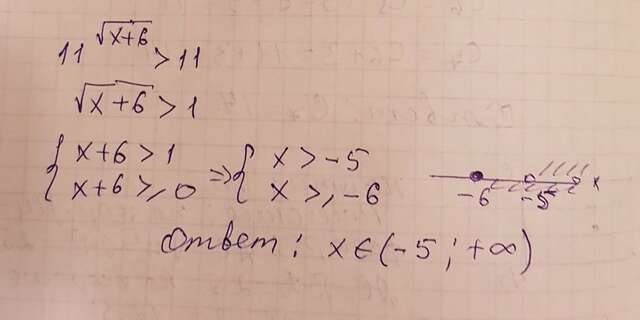 11^√(x+6) > 11
√(x+6) > 1
{ x+6 > 1 ⇒ { x > -5
{ x+6 ≥ 0 { x ≥ -6
-6 -5 x
Ответ: x ∈ (-5; +∞)